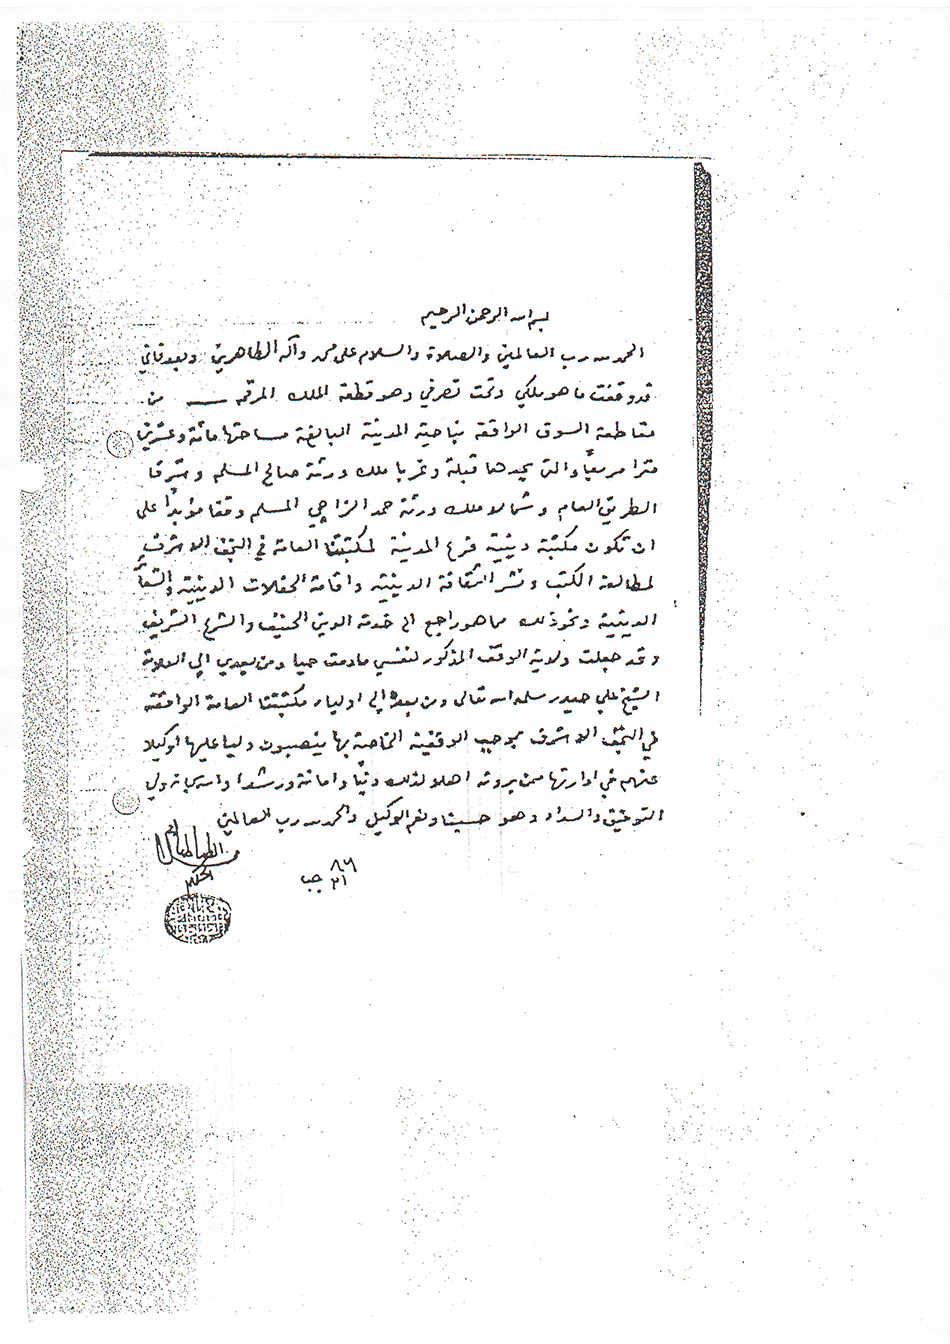 بسم الله الرحمن الرحيم
الحمد لله رب العالمين والصلاة والسلام على محمد وآله الطاهرين وبعد فاني
قد وقفت ما هو ملكي وتحت تصرفي وهو قطعة الملك المرقمة ـــ من
مقاطعة السوق الواقعة بناحية المدينة البالغة مساحتها مائة وعشرين
مترا مربعاً والتي يحدها قبلة وغربا ملك ورثة صالح المسلم وشرقا
الطريق العام وشمالا ملك ورثة حمد الراجي المسلم وقفا مؤبداً على
ان تكون مكتبة دينية فرع المدينة لمكتبتنا العامة في النجف الاشرف
لمطالعة الكتب ونشر الثقافة الدينية واقامة الحفلات الدينية والشعائر
الدينية ونحو ذلك مما هو راجع الى خدمة الدين الحنيف والشرع الشريف
وقد جعلت ولاية الوقف المذكور لنفسي مادمت حيا ومن بعدي الى العلامة
الشيخ علي حيدر سلمه الله تعالى ومن بعده إلى اولياء مكتبتنا العامة الواقعة
في النجف الاشرف بموجب الوقفية الخاصة بها ينصبون وليا عليها أوكيلا
عنهم في ادارتها ممن يرونه اهلا لذلك دينا وامانة ورشدا والله سبحانه ولي
التوفيق والسداد وهو حسبنا ونعم الوكيل والحمد لله رب العالمين
الطباطبائي
الحكيم
٨٦
٢١ جب